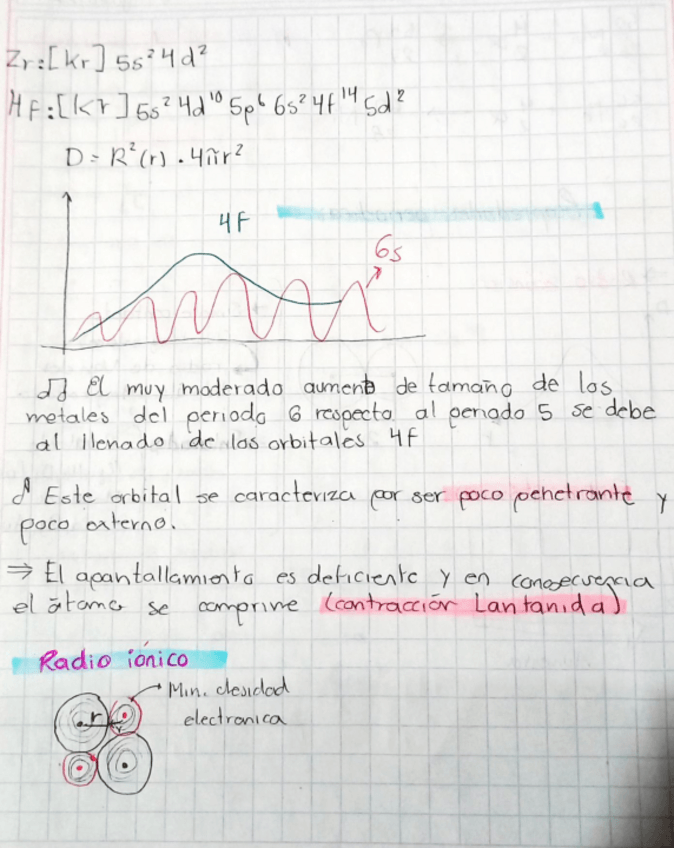 Zr:[Kr] 5s² 4d²
Hf:[Kr] 5s² 4d¹⁰ 5p⁶ 6s² 4f¹⁴ 5d²
D = R²(r) · 4πr²
4F
6s
El muy moderado aumento de tamaño de los
metales del periodo 6 respecto al periodo 5 se debe
al llenado de los orbitales 4F
Este orbital se caracteriza por ser poco penetrante y
poco externo.
⇒ El apantallamiento es deficiente y en consecuencia
el átomo se comprime (contracción Lantanida)
Radio iónico
Min. desidad
electronica
r